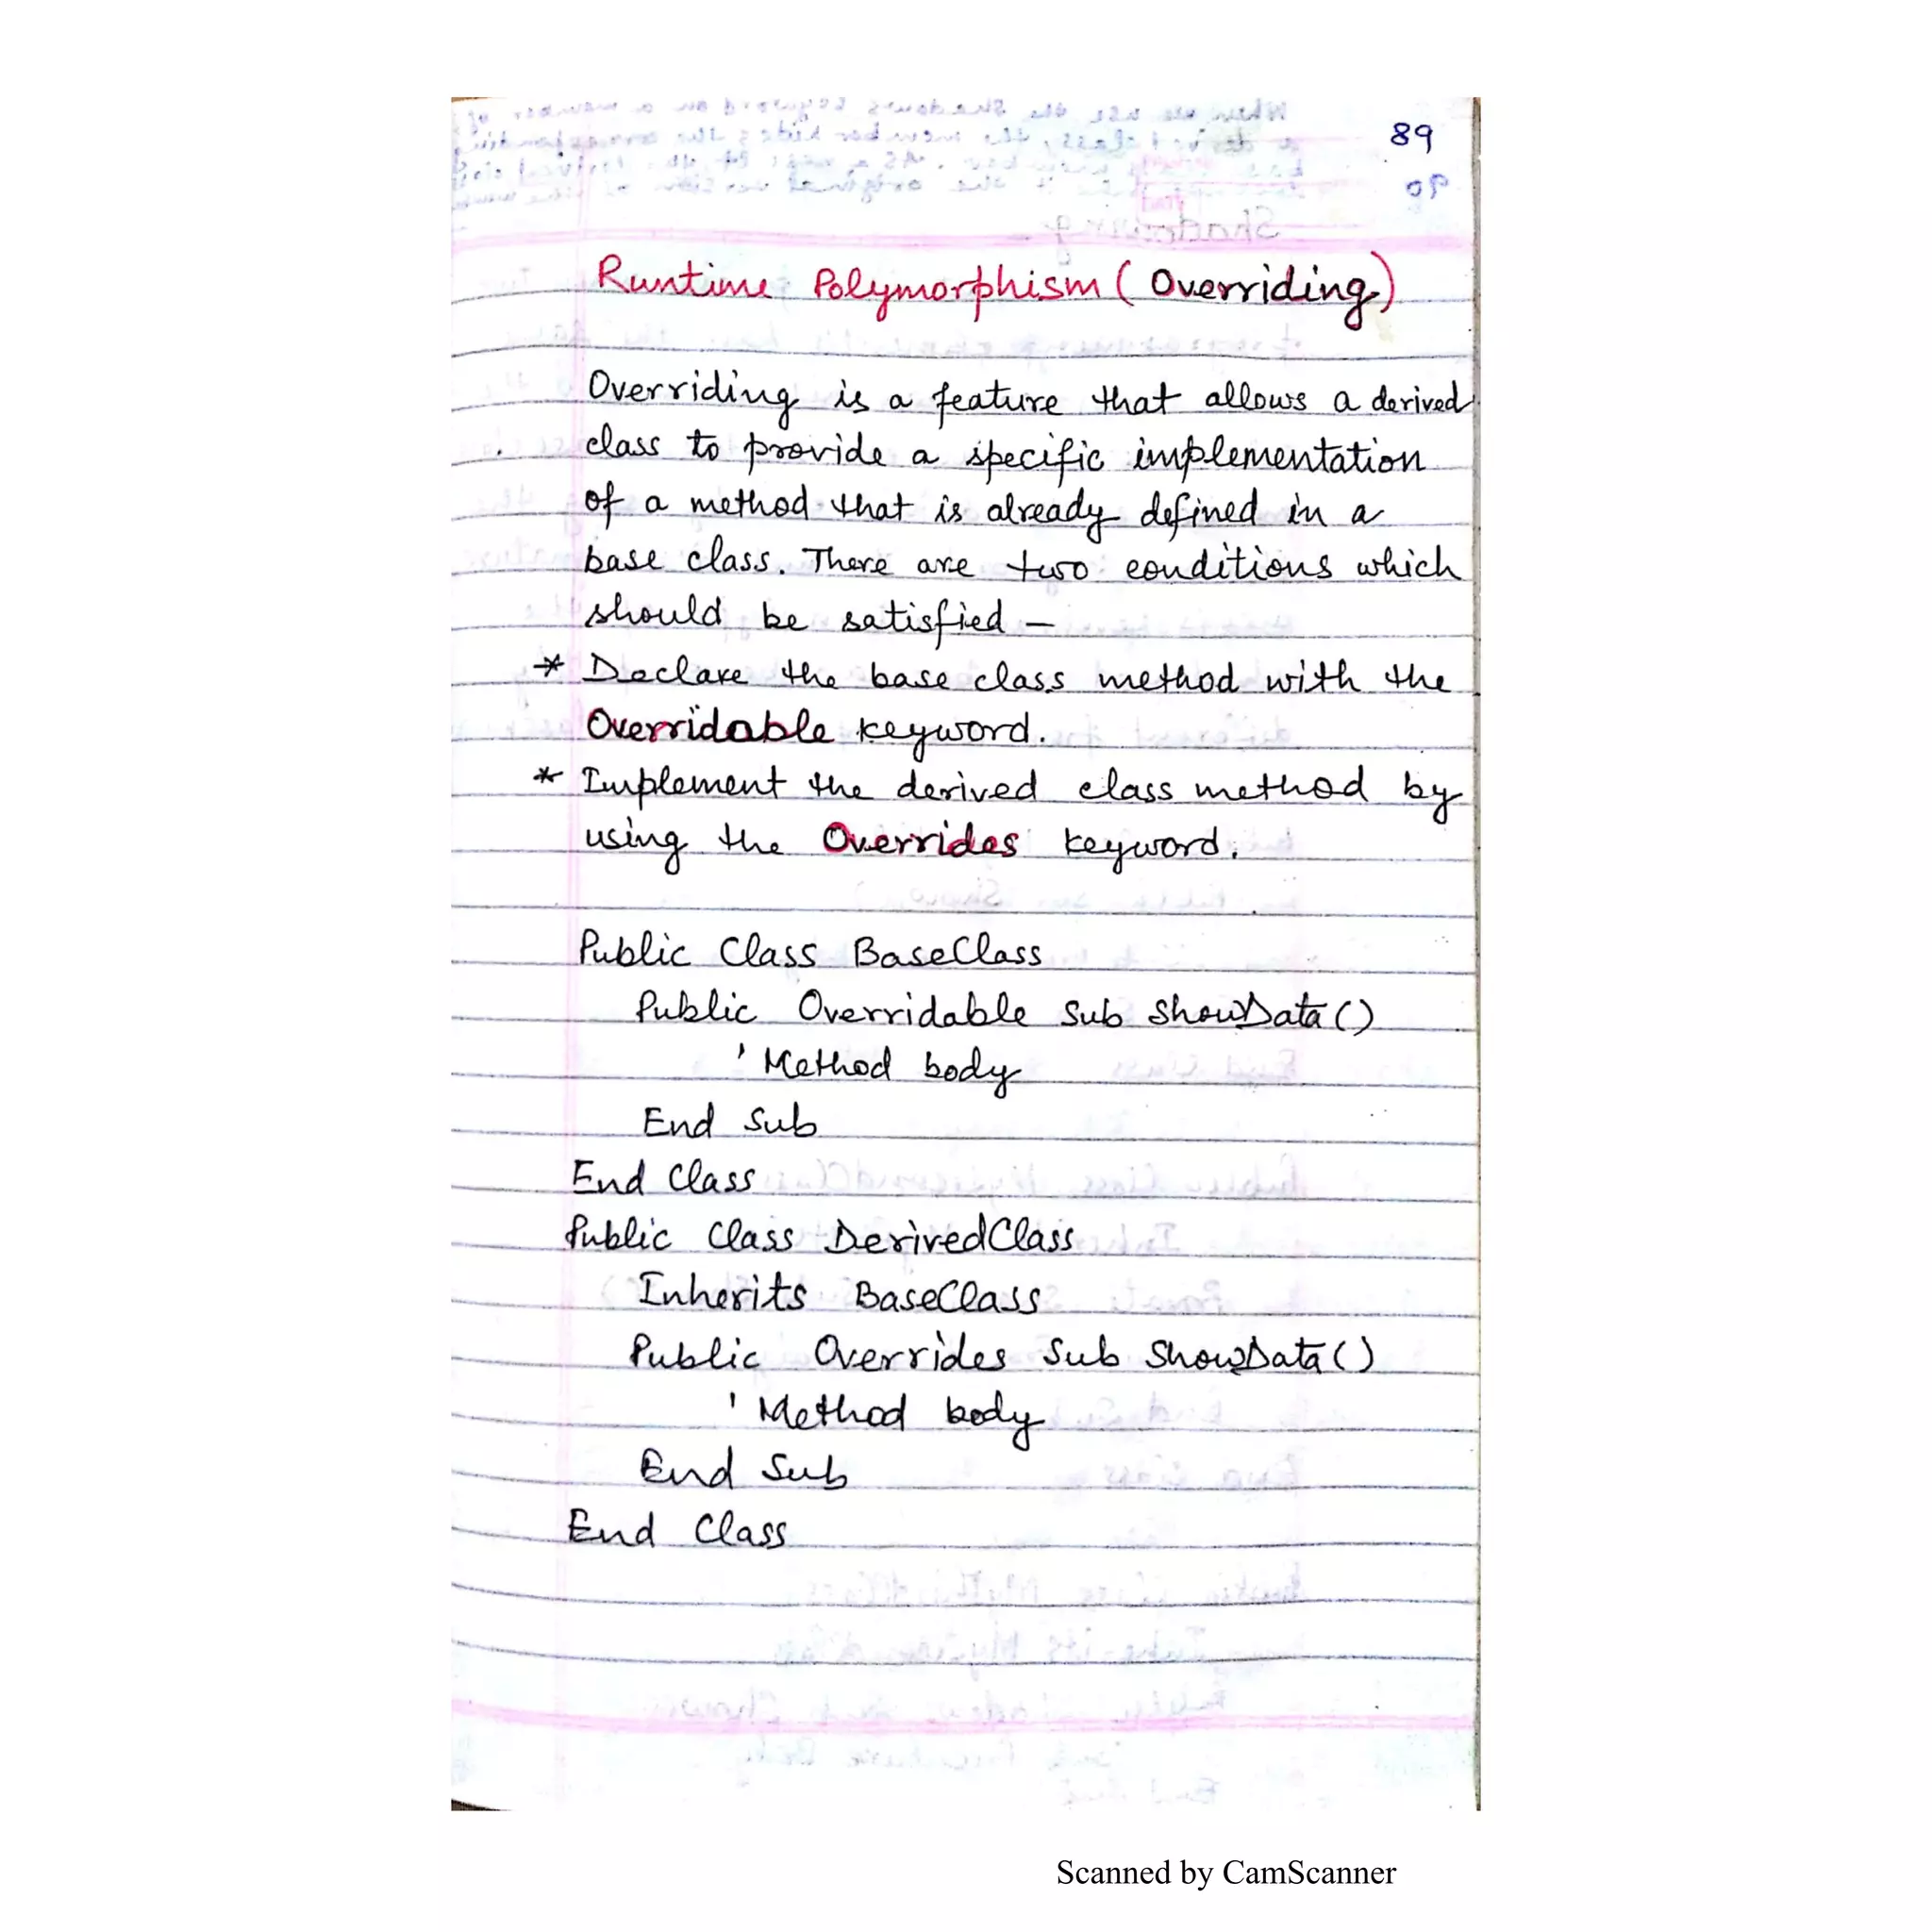 89
90
Runtime Polymorphism (Overriding)
Overriding is a feature that allows a derived
class to provide a specific implementation
of a method that is already defined in a
base class. There are two conditions which
should be satisfied –
* Declare the base class method with the
Overridable keyword.
* Implement the derived class method by
using the Overrides keyword.
Public Class BaseClass
Public Overridable Sub ShowData()
' Method body
End Sub
End Class
Public Class DerivedClass
Inherits BaseClass
Public Overrides Sub ShowData()
' Method body
End Sub
End Class
Scanned by CamScanner